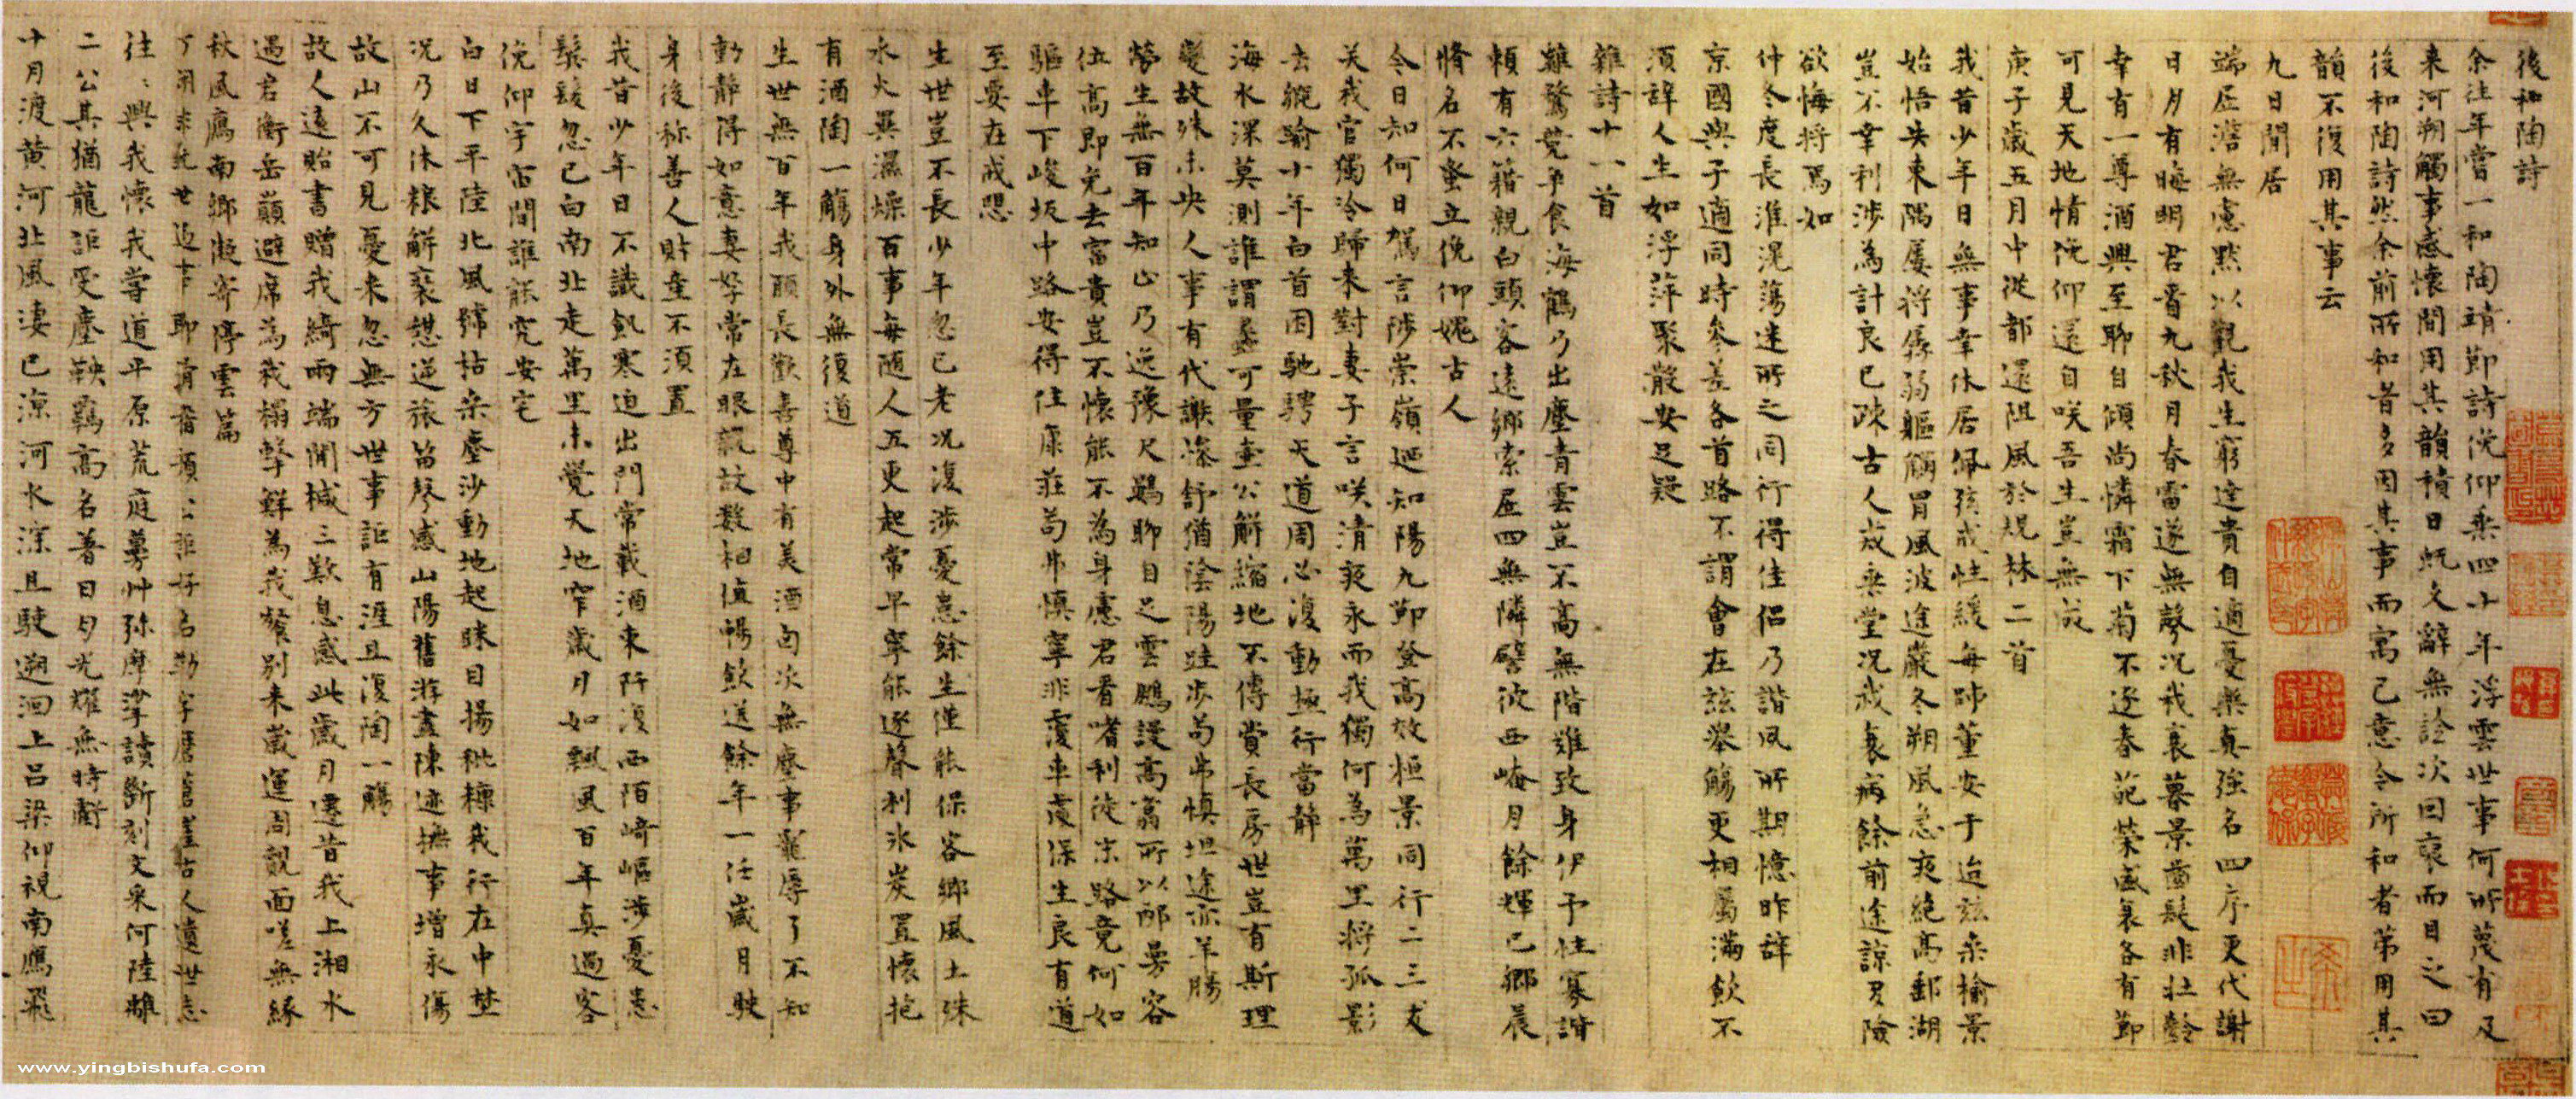 後和陶詩
余往年嘗一和陶靖節詩俛仰乘四十年浮雲世事何所蔑有及
来河朔觸事感懷間用其韻積日既久辭無詮次因裒而目之曰
後和陶詩然余前所和者多因其事而寓己意今所和者第用其
韻不復用其事云
九日閒居
端居澹無慮默以觀我生窮達貴自適憂樂真強名四序更代謝
日月有晦明君看九秋月春雷遂無聲况我衰暮景齒髮非壯齡
幸有一尊酒興至聊自傾尚憐霜下菊不逐春葩榮盛衰各有節
可見天地情俛仰還自咲吾生豈無成
庚子歲五月中從都還阻風於規林二首
我昔少年日無事幸休居佩弦戒性緩每師董安于迨茲桑榆景
始悟失東隅屢將孱弱軀觸冒風波途嚴冬朔風急夜絶高郵湖
豈不幸利涉為計良已疎古人戒垂堂况我衰病餘前途諒多險
欲悔將焉如
仲冬度長淮滉蕩迷所之同行得佳侶乃諧夙所期憶昨辭
京國與子適同時參差各首路不謂會在茲舉觴更相屬滿飲不
須辭人生如浮萍聚散安足疑
雜詩十一首
雞鶩競爭食海鶴乃出塵青雲豈不高無階難致身伊予性寡諧
賴有六籍親白頭客遠鄉索居四無隣譬彼西崦月餘輝已鄉晨
脩名不蚤立俛仰媿古人
今日知何日駕言陟崇嶺廼知陽九節登高效桓景同行二三友
关我官獨冷歸来對妻子言咲清夜永而我獨何為萬里將孤影
去縱踰十年白首困馳騁天道周必復動極行當靜
海水深莫測誰謂蠡可量壺公解縮地不傳賞長房世豈有斯理
變故殊未央人事有代謝慘舒猶陰陽跬步苟弗慎坦途亦羊腸
勞生無百年知止乃逸豫尺鷃聊自足雲鵬謾高翥所以邴曼容
位高即免去富貴豈不懷能不為身慮君看嗜利徒末路竟何如
驅車下峻坂中路安得住康莊苟弗慎寧非覆車處保生良有道
至要在戒懼
生世豈不長少年忽已老况復涉憂患餘生僅能保客鄉風土殊
水火異濕燥百事每隨人五更起常早寧能逐聲利氷炭置懷抱
有酒陶一觴身外無復道
生世無百年我願長歡喜尊中有美酒自次無塵事寵辱了不知
動靜得如意妻孥常在眼親故数相值暢飲送餘年一任歲月駛
身後称善人貯產不須置
我昔少年日不識飢寒迫出門常載酒東阡復西陌崎嶇涉憂患
鬓髮忽已白南北走萬里未覺天地窄歲月如飄風百年真過客
俛仰宇宙間誰能究安宅
白日下平陸北風歸枯桑塵沙動地起眯目揚粃糠我行在中埜
况乃久休粮解裘憩逆旅笛聲感山陽舊游盡陳迹撫事增永傷
故山不可見憂来忽無方世事詎有涯且復陶一觴
故人遠貽書贈我綺兩端開椷三歎息感此歲月遷昔我上湘水
過君衡岳巔避席為我榻擊鮮為我餐別来歲運周覿面嗟無緣
秋風鴈南鄉凝寄停雲篇
丁
往往興我懷我嘗道平原荒庭蓦艸弥摩挲讀斷刻文采何陸離
二公其猶龍詎受塵鞅羈高名著日月光耀無時虧
十月渡黄河北風淒已涼河水深且駛遡洄上吕梁仰視南鴈飛
www.yingbishufa.com